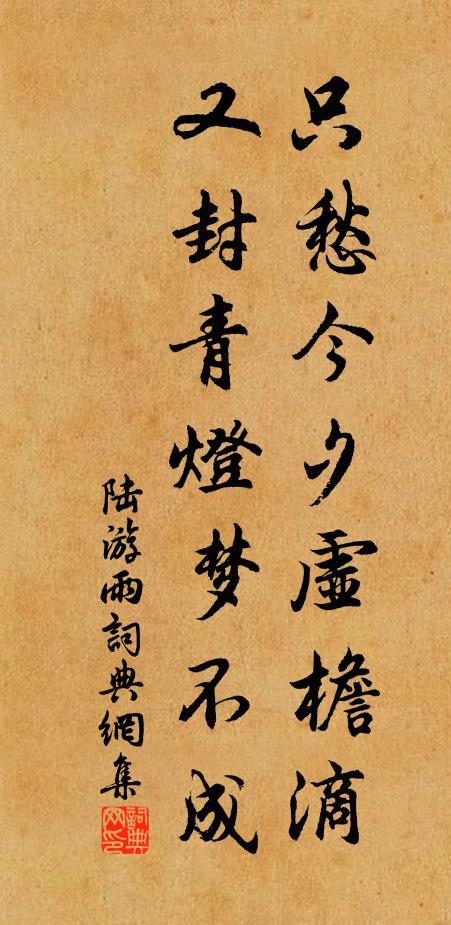 只愁今夕虛檐滴
又封青燈梦不成
陆游雨詞典網集
詞典网印